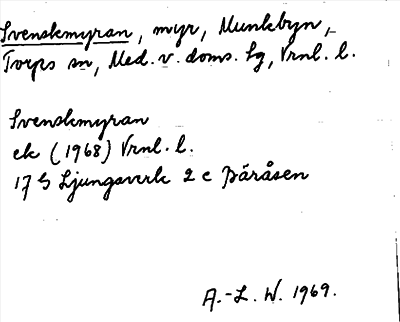 Svenskmyran, myr, Munkbyn,
Torps sn, Med. v. doms. lg, Vrnl. l.
Svenskmyran
ek (1968) Vrnl. l.
17 G Ljungaverk 2 c Bäråsen
A.-L. W. 1969.